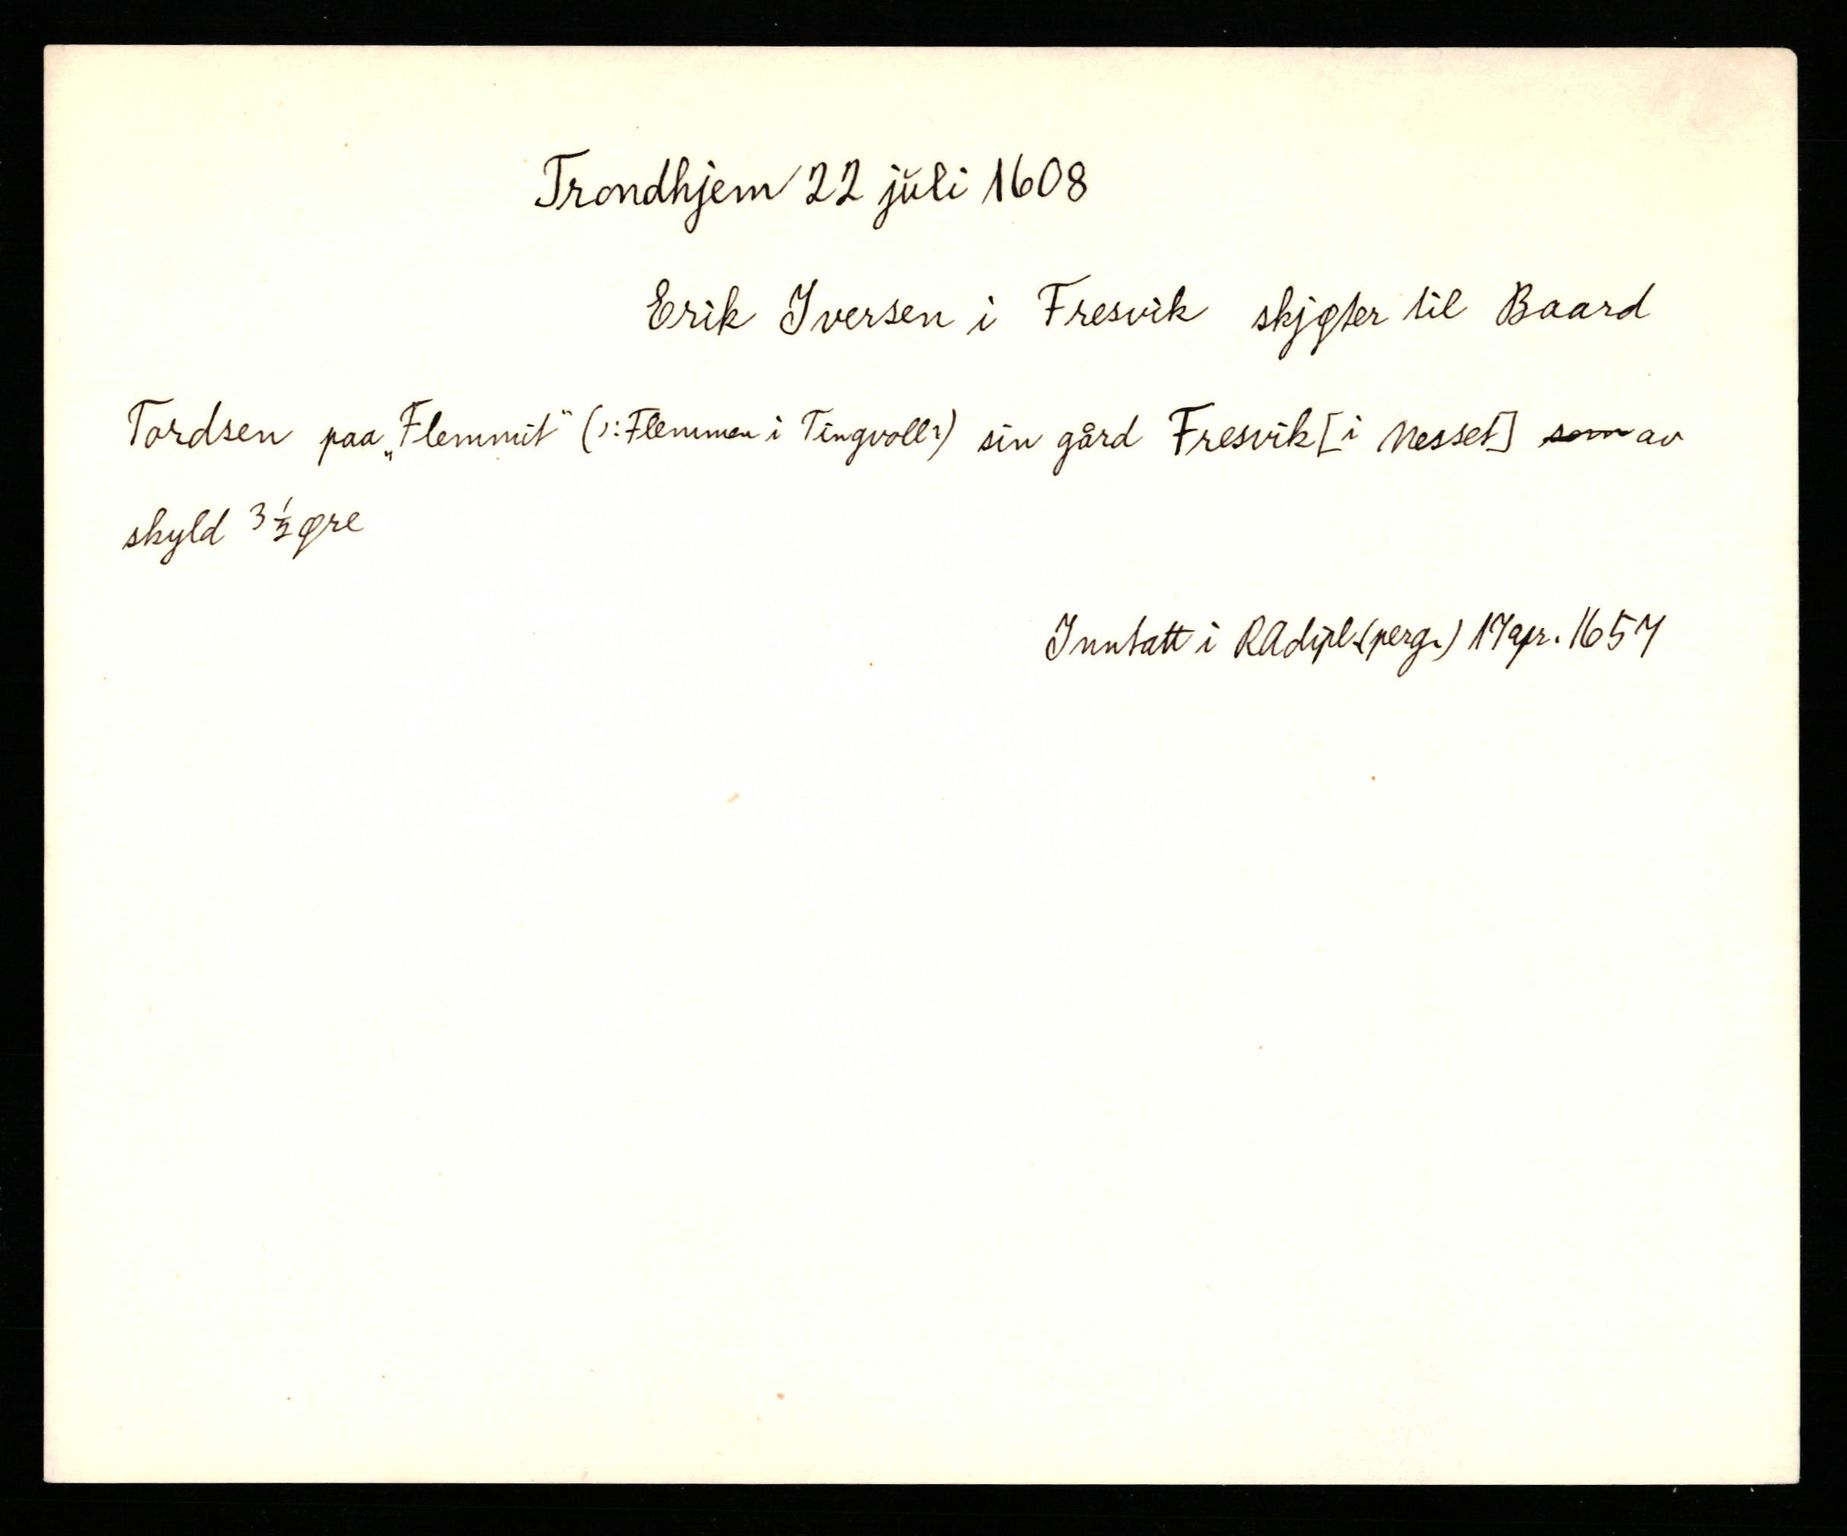 Trondhjem 22 juli 1608
Erik Iversen i Fresvik skjøter til Baard
Tordsen paa „Flemmit“ (ɔ: Flemmen i Tingvoll?) sin gård Fresvik [i Nesset] ~~som~~ av
skyld 3 ½ øre
Inntatt i RAdipl. (perg.) 17 apr. 1657